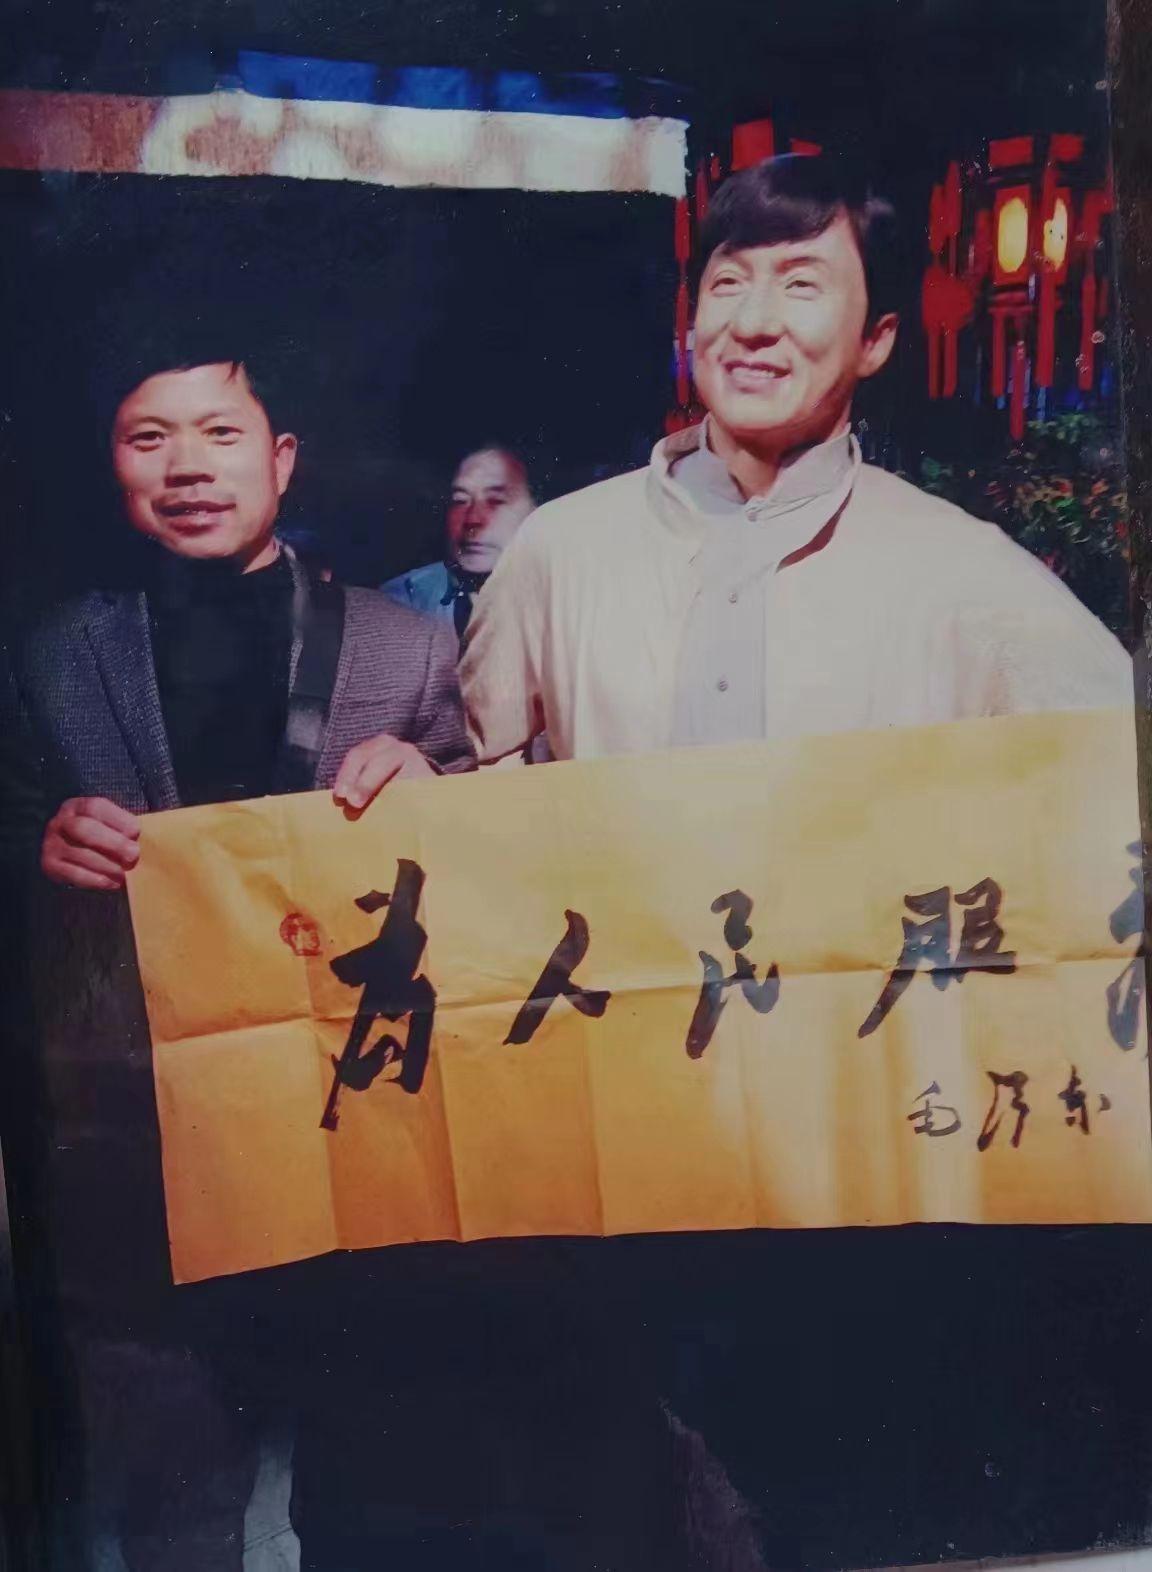 为人民服务
毛泽东